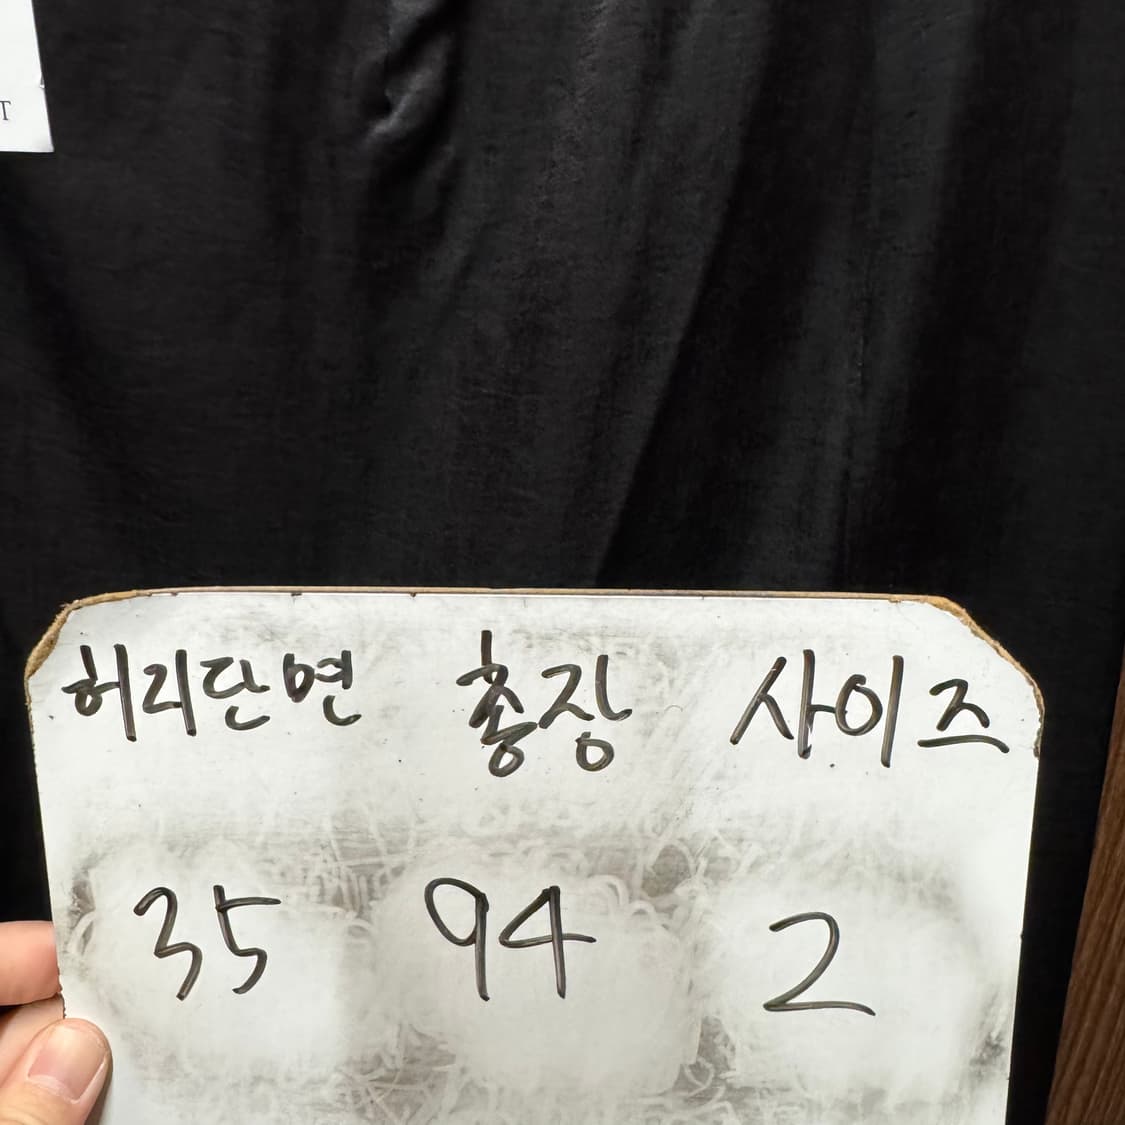 T
허리단면 총장 사이즈
35 94 2